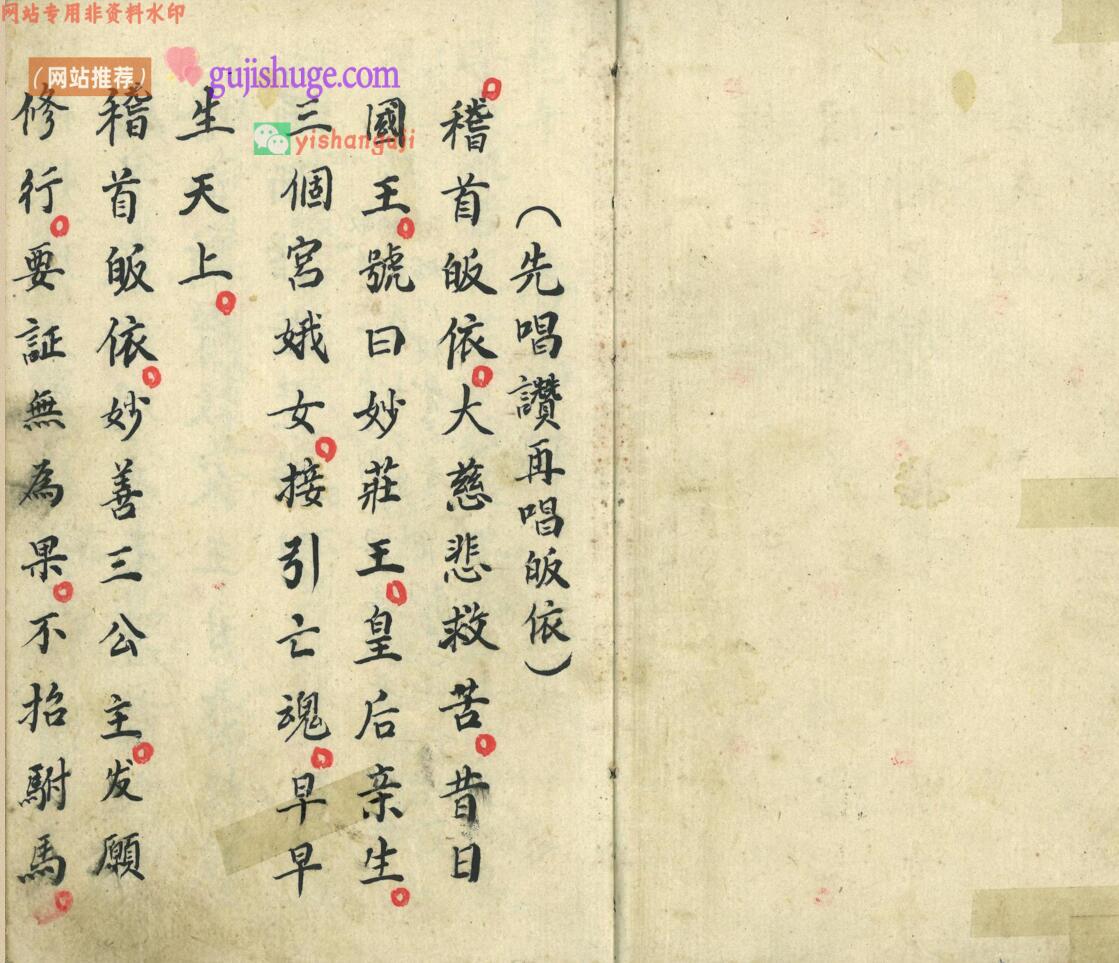 网站专用非资料水印
（网站推荐）
gujishuge.com
yishanguji
（先唱讚再唱皈依）
稽首皈依。大慈悲救苦。昔日
國王。號曰妙莊王。皇后亲生。
三個宮娥女。接引亡魂。早早
生天上。
稽首皈依。妙善三公主。发願
修行。要証無為果。不招駙馬。